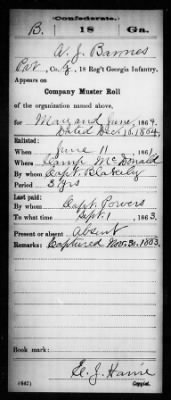 Confederate.
B. 18 Ga.
W. J. Barnes
Pvt, Co. G, 18 Reg't Georgia Infantry.
Appears on
Company Muster Roll
of the organization named above,
for May and June, 1864.
Dated Dec. 15, 1864
Enlisted:
When June 11, 1861.
Where Camp McDonald
By whom Capt. Blakely
Period 3 Yrs
Last paid:
By whom Capt. Powers
To what time Sept. 1, 1863.
Present or absent Absent
Remarks: Captured Nov. 30, 1863.
Book mark:
(642) Copyist.